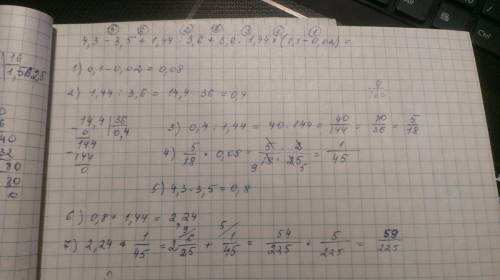 16
1,5625
⑥ ⑤ ④ ⑥ ③ ② ①
4,3 - 3,5 + 1,44 : 3,6 + 3,6 : 1,44 × (0,1 - 0,02) =
1) 0,1 - 0,02 = 0,08
2) 1,44 : 3,6 = 14,4 : 36 = 0,4
8/100
14,4 | 36
0 | 0,4
- 144
144
0
3) 0,4 : 1,44 = 40 : 144 = 40/144 = 10/36 = 5/18
4) 5/18 · 0,08 = 5/18 · 2/25 = 1/45
9 5
5) 4,3 - 3,5 = 0,8
6) 0,8 + 1,44 = 2,24
7) 2,24 + 1/45 = 2 6/25 + 1/45 = 54/225 + 5/225 = 59/225
40
32
80
80
0